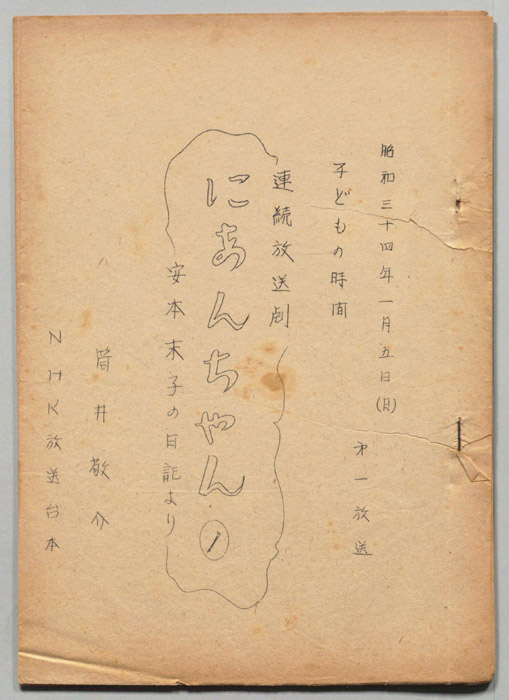 昭和三十四年一月五日(月)
第一放送
子どもの時間
連続放送劇
にあんちゃん 1
安本末子の日記より
筒井敬介
NHK放送台本